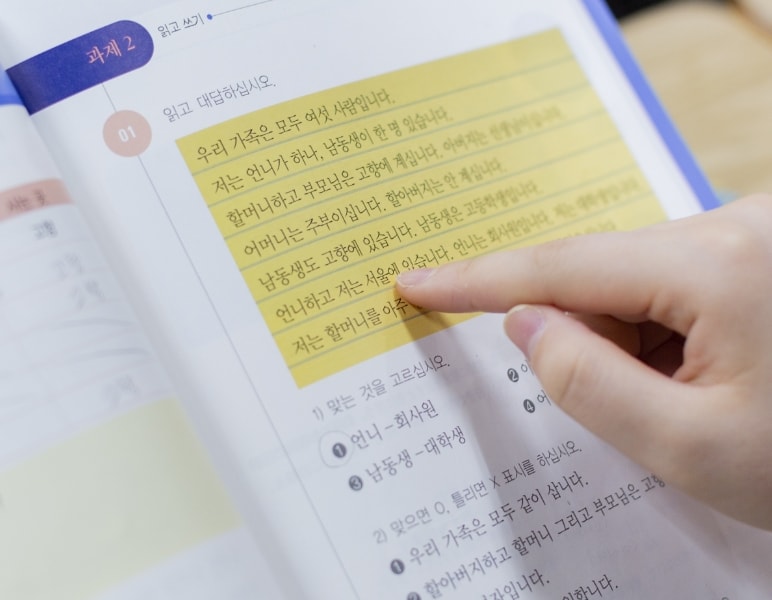 과제 2
읽고 쓰기
01
읽고 대답하십시오.
우리 가족은 모두 여섯 사람입니다.
저는 언니가 하나, 남동생이 한 명 있습니다.
할머니하고 부모님은 고향에 계십니다. 아버지는 선생님이십니다.
어머니는 주부이십니다. 할아버지는 안 계십니다.
남동생도 고향에 있습니다. 남동생은 고등학생입니다.
언니하고 저는 서울에 있습니다. 언니는 회사원입니다. 저는 대학생입니다.
저는 할머니를 아주
1) 맞는 것을 고르십시오.
❶ 언니 – 회사원
❷
❸ 남동생 – 대학생
❹ 어
2) 맞으면 O, 틀리면 X 표시를 하십시오.
❶ 우리 가족은 모두 같이 삽니다.
❷ 할아버지하고 할머니 그리고 부모님은 고향
고향